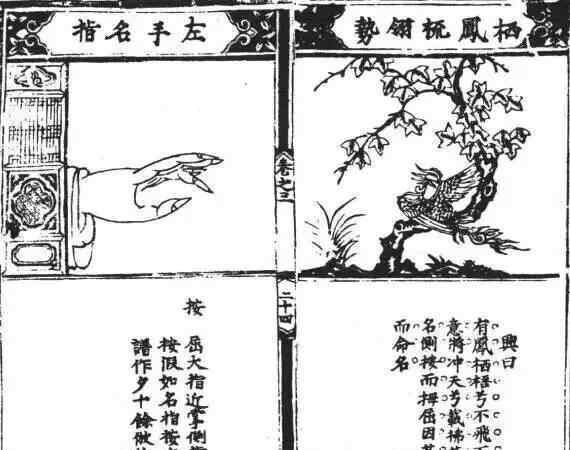 栖鳳梳翎勢
興曰
有鳳栖梧兮不飛
意將冲天兮載拂
名側按而拇屈因其
而命名
卷之
二十四
左手名指
按
屈大指近掌側
按假如名指按
譜作夕十餘倣